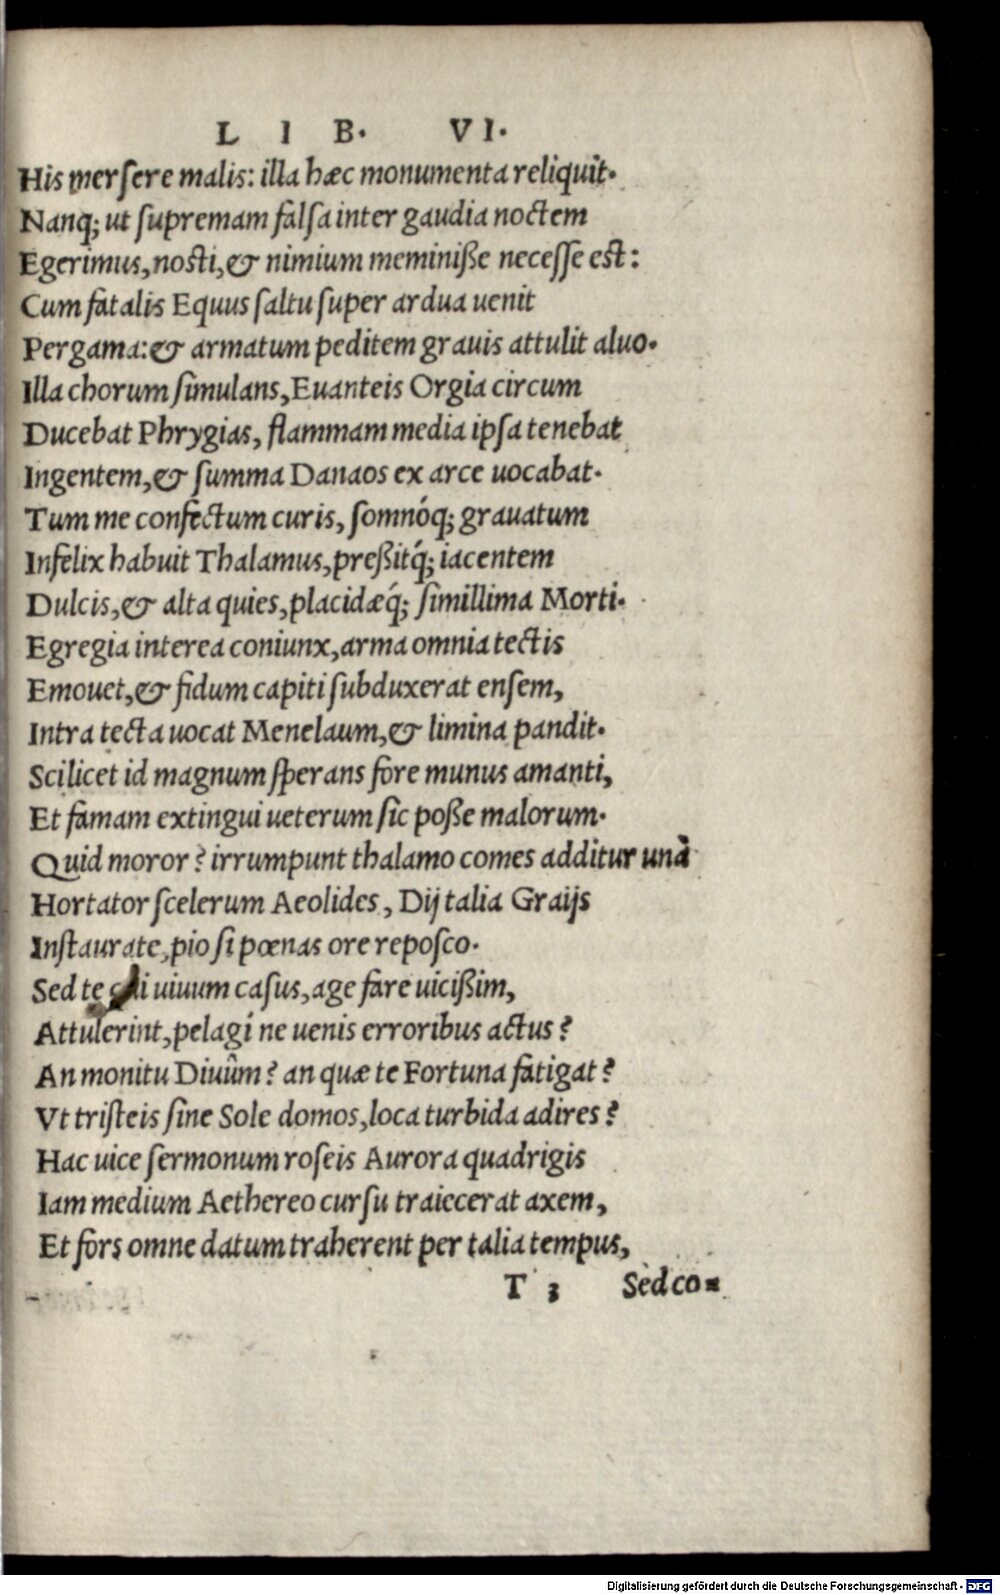 L I B. VI.
His merſere malis: illa hæc monumenta reliquit.
Nanq; ut ſupremam falſa inter gaudia noctem
Egerimus, nosti, & nimium meminiße neceſſe est:
Cum fatalis Equus ſaltu ſuper ardua uenit
Pergama: & armatum peditem grauis attulit aluo.
Illa chorum ſimulans, Euanteis Orgia circum
Ducebat Phrygias, flammam media ipſa tenebat
Ingentem, & ſumma Danaos ex arce uocabat.
Tum me confectum curis, ſomnóq; grauatum
Infelix habuit Thalamus, preßitq́; iacentem
Dulcis, & alta quies, placidæq́; ſimillima Morti.
Egregia interea coniunx, arma omnia tectis
Emouet, & fidum capiti ſubduxerat enſem,
Intra tecta uocat Menelaum, & limina pandit.
Scilicet id magnum ſperans fore munus amanti,
Et famam extingui ueterum ſic poße malorum.
Quid moror? irrumpunt thalamo comes additur unà
Hortator ſcelerum Aeolides, Dij talia Graijs
Inſtaurate, pio ſi pœnas ore repoſco.
Sed te uiuum caſus, age fare uicißim,
Attulerint, pelagi ne uenis erroribus actus?
An monitu Diuûm? an quæ te Fortuna fatigat?
Vt triſteis ſine Sole domos, loca turbida adires?
Hac uice ſermonum roſeis Aurora quadrigis
Iam medium Aethereo curſu traiecerat axem,
Et fors omne datum traherent per talia tempus,
T 3 Sed co=
Digitalisierung gefördert durch die Deutsche Forschungsgemeinschaft - DFG